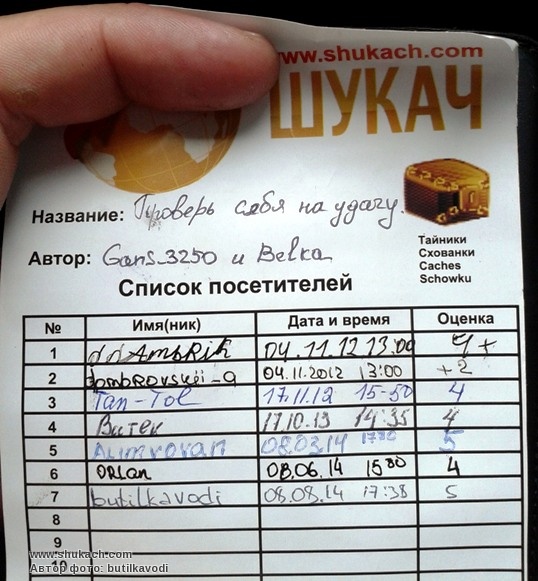 www.shukach.com
ШУКАЧ
Название: Проверь себя на удачу.
Автор: Gans_3250 и Belka
Тайники
Схованки
Caches
Schowku
Список посетителей
№ Имя(ник) Дата и время Оценка
1 04.11.12 13:00 4+
2 dombrovskji-a 04.11.2012 13:00 +2
3 Tan-Tol 17.11.12 15-50 4
4 Витек 17.10.13 14:35 4
5 08.03.14 5
6 ORLan 08.06.14 4
7 butilkavodi 08.08.14 17:38 5
8
9
10
www.shukach.com
Автор фото: butilkavodi